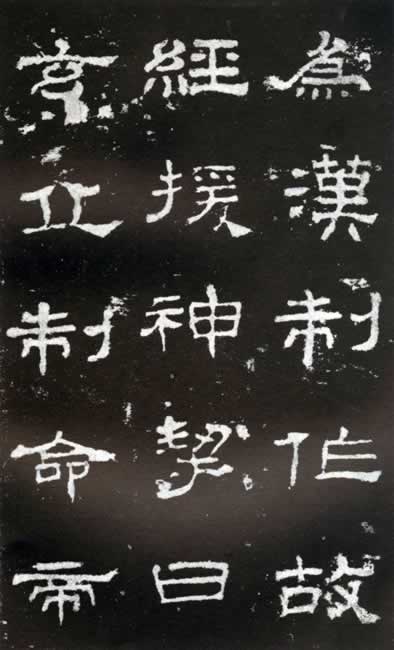 為漢制作故
經援神挈曰
玄丘制命帝